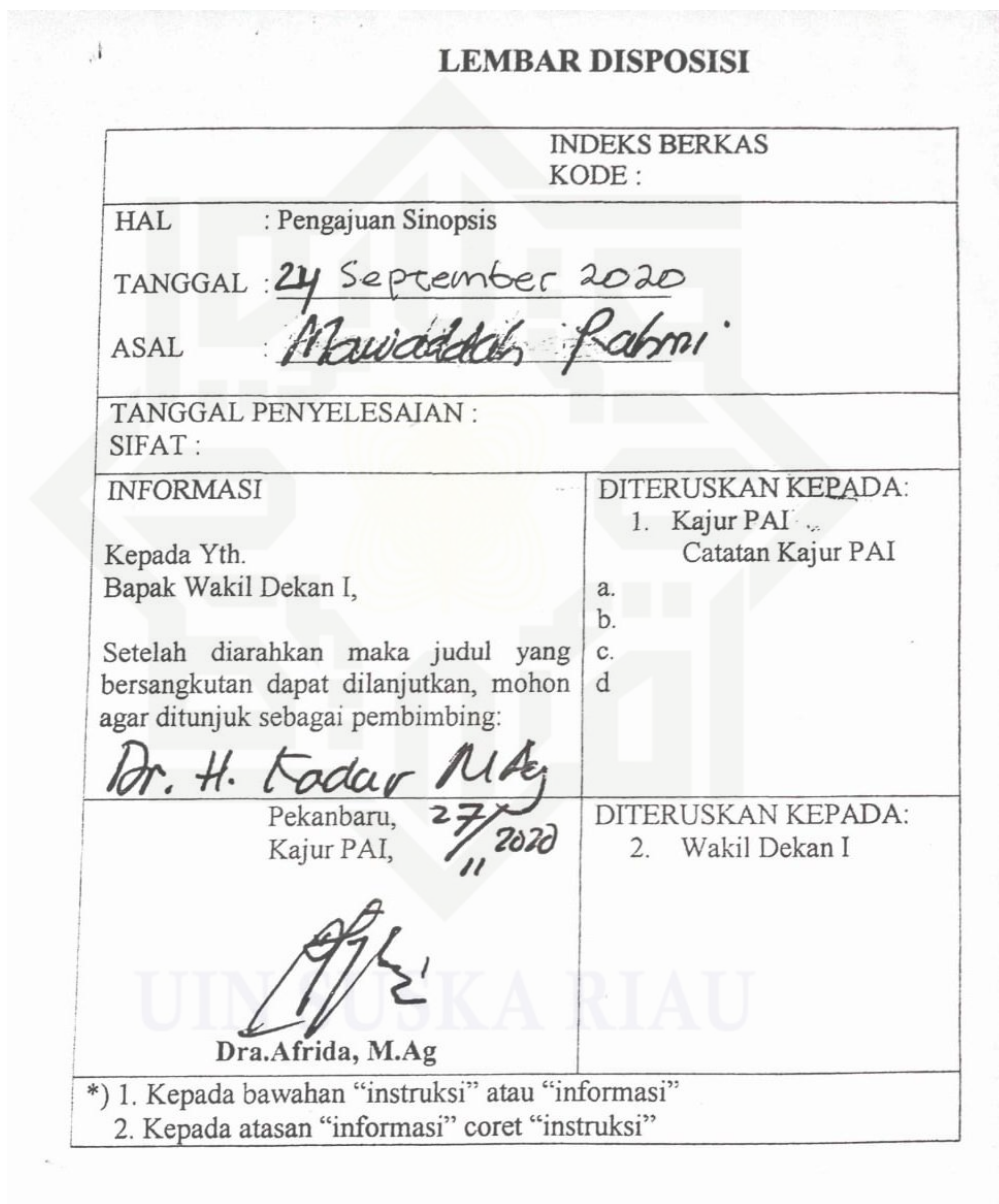 LEMBAR DISPOSISI
INDEKS BERKAS
KODE :
HAL : Pengajuan Sinopsis
TANGGAL : 24 September 2020
ASAL : Mawaddah Rahmi
TANGGAL PENYELESAIAN :
SIFAT :
INFORMASI
Kepada Yth.
Bapak Wakil Dekan I,
Setelah diarahkan maka judul yang
bersangkutan dapat dilanjutkan, mohon
agar ditunjuk sebagai pembimbing:
Dr. H. Kadar M.Ag
DITERUSKAN KEPADA:
1. Kajur PAI
Catatan Kajur PAI
a.
b.
c.
d
Pekanbaru, 27/11 2020
Kajur PAI,
Dra.Afrida, M.Ag
DITERUSKAN KEPADA:
2. Wakil Dekan I
UIN SUSKA RIAU
*) 1. Kepada bawahan “instruksi” atau “informasi”
2. Kepada atasan “informasi” coret “instruksi”